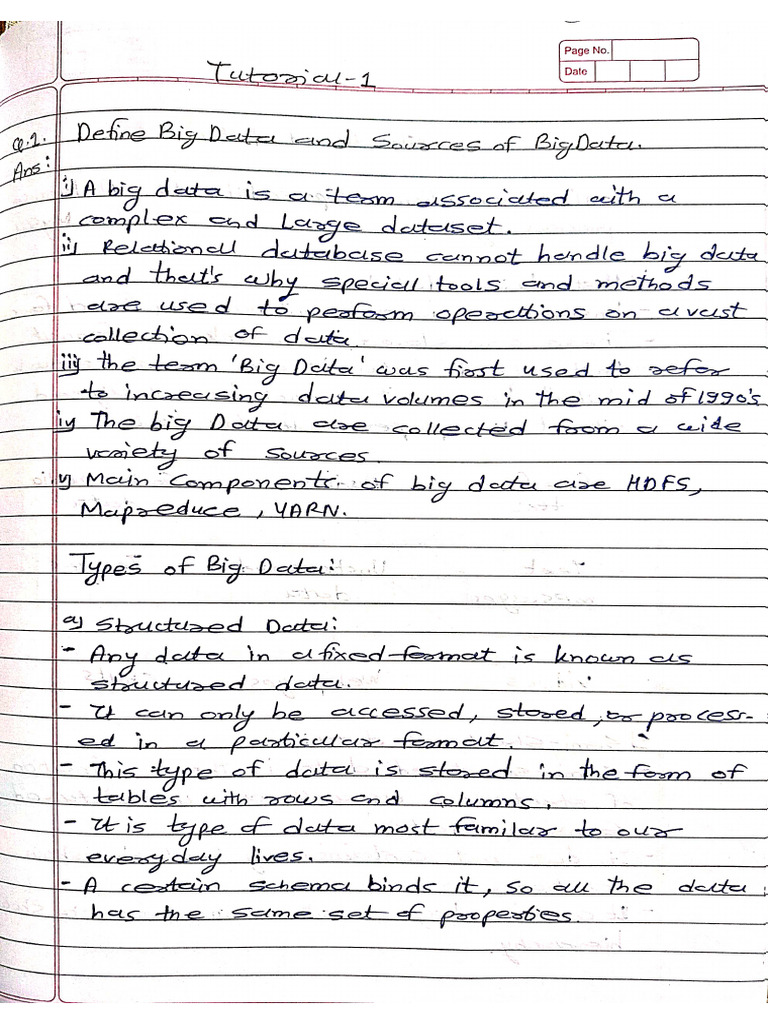 Page No.
Date
Tutorial-1
Q.1. Define Big Data and Sources of Big Data.
Ans:
i) A big data is a term associated with a
complex and Large dataset.
ii) Relational database cannot handle big data
and that's why special tools and methods
are used to perform operations on a vast
collection of data.
iii) The term 'Big Data' was first used to refer
to increasing data volumes in the mid of 1990's.
iv) The big Data are collected from a wide
variety of sources.
v) Main Components of big data are HDFS,
Mapreduce, YARN.
Types of Big Data:
a) Structured Data:
- Any data in a fixed format is known as
structured data.
- It can only be accessed, stored, or process-
ed in a particular format.
- This type of data is stored in the form of
tables with rows and columns.
- It is type of data most familar to our
everyday lives.
- A certain schema binds it, so all the data
has the same set of properties.